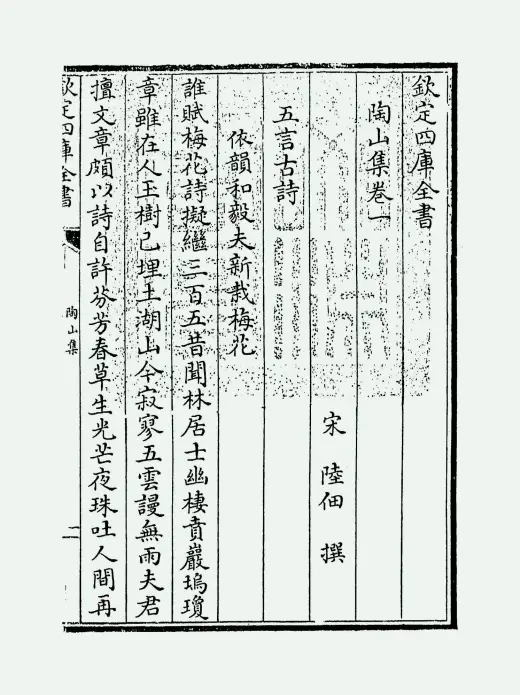 欽定四庫全書
陶山集卷一
宋 陸佃 撰
五言古詩
依韻和毅夫新栽梅花
誰賦梅花詩擬繼三百五昔聞林居士幽棲賁巖塢瓊
章雖在人玉樹已埋土湖山今寂寥五雲謾無雨夫君
擅文章頗以詩自許芬芳春草生光芒夜珠吐人間再
欽定四庫全書
陶山集